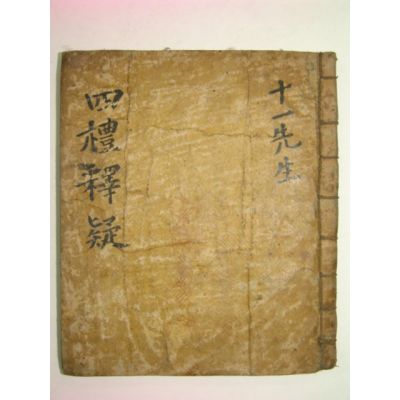 十一先生
四禮釋疑